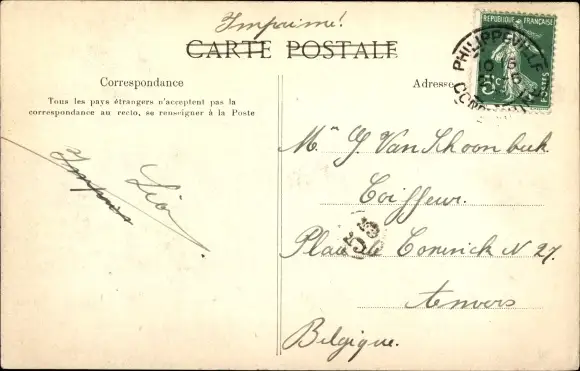 Imprimé!
CARTE POSTALE
Correspondance
Tous les pays étrangers n'acceptent pas la
correspondance au recto, se renseigner à la Poste
Léon
Adresse
REPUBLIQUE FRANÇAISE
POSTES
5c
PHILIPPEVILLE
Mr J. Van Schoonbeek
Coiffeur.
Place de Coninck N 27.
53
Anvers
Belgique.